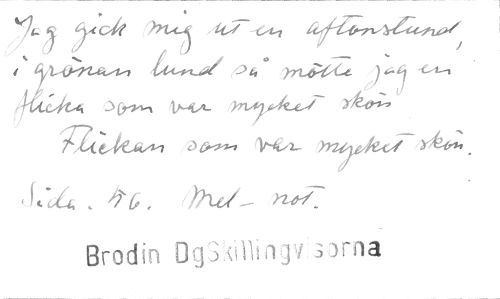 Jag gick mig ut en aftonstund,
i grönan lund så mötte jag en
flicka som var mycket skön
Flickan som var mycket skön.
Sida. 56. Mel- not.
Brodin DgSkillingvisorna